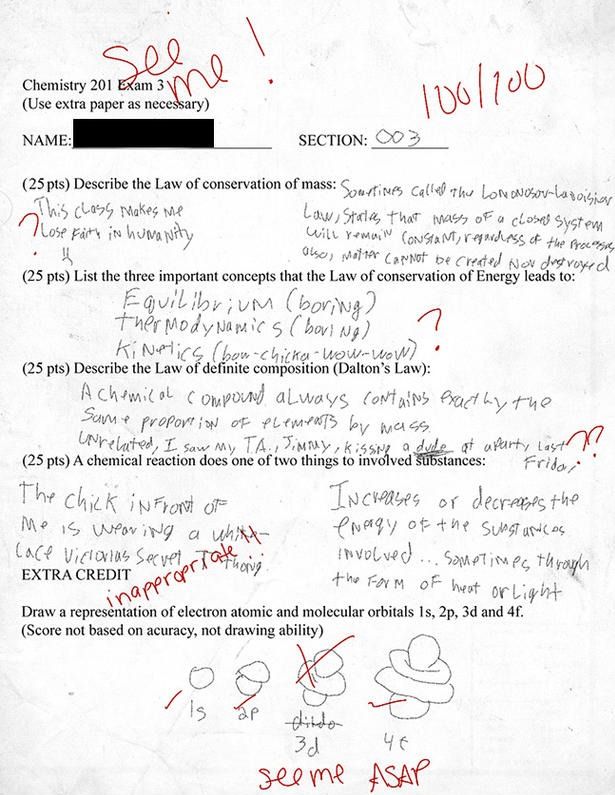 See me!
Chemistry 201 Exam 3
(Use extra paper as necessary)
100/100
NAME:
SECTION: 003
(25 pts) Describe the Law of conservation of mass: Sometimes called the Lomonosov-Lavoisier
Law, States that mass of a closed system
will remain constant, regardless of the processes
also, matter cannot be created nor destroyed
This class makes me
lose faith in humanity
?
(25 pts) List the three important concepts that the Law of conservation of Energy leads to:
Equilibrium (boring)
thermodynamics (boring)
Kinetics (bow-chicka-wow-wow)
?
(25 pts) Describe the Law of definite composition (Dalton's Law):
A chemical compound always contains exactly the
same proportion of elements by mass.
Unrelated, I saw my T.A., Jimmy, kissing a dude at a party last
Friday
??
(25 pts) A chemical reaction does one of two things to involved substances:
The chick in front of
me is wearing a white
lace Victorias Secret thong
inappropriate!!
Increases or decreases the
energy of the substances
involved... sometimes through
the form of heat or light
EXTRA CREDIT
Draw a representation of electron atomic and molecular orbitals 1s, 2p, 3d and 4f.
(Score not based on acuracy, not drawing ability)
1s
2p
dildo
3d
4f
see me ASAP